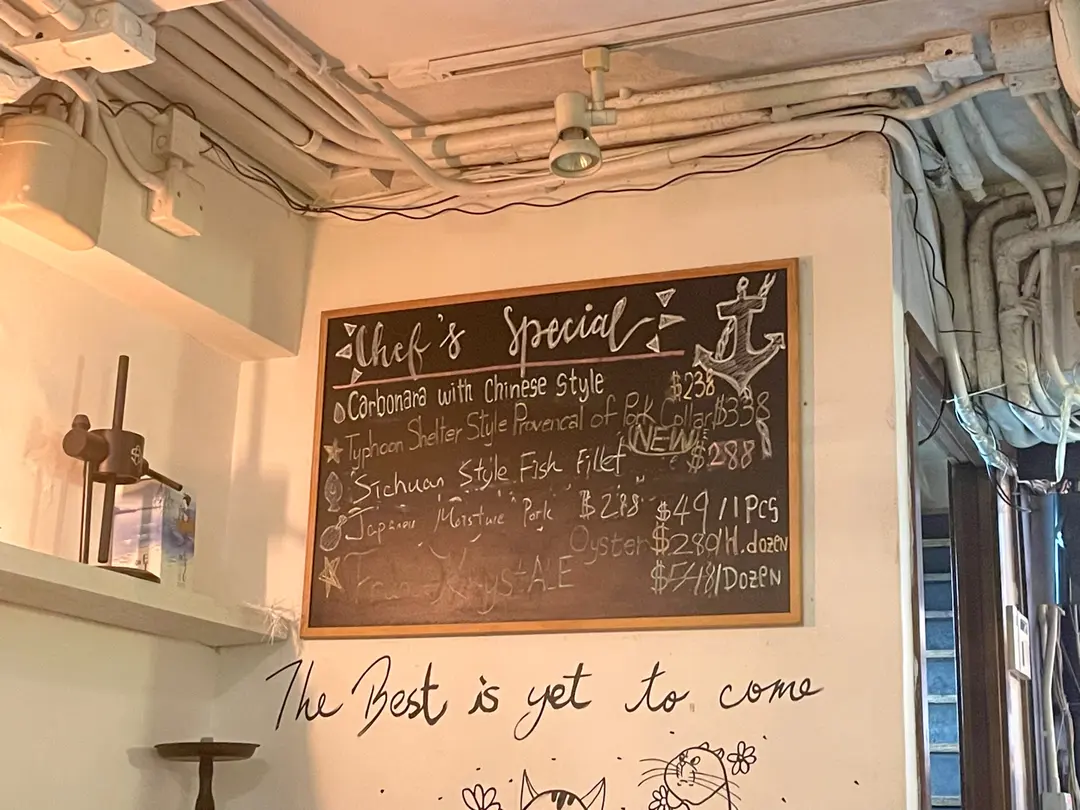 Chef's Special
Carbonara with Chinese Style $238
Typhoon Shelter Style Provencal of Pork Collar $338
NEW!
Sichuan Style Fish Fillet $288
Japanou Moisture Pork $288
$49/1Pcs
Oyster $280/H.dozen
$548/Dozen
The Best is yet to come